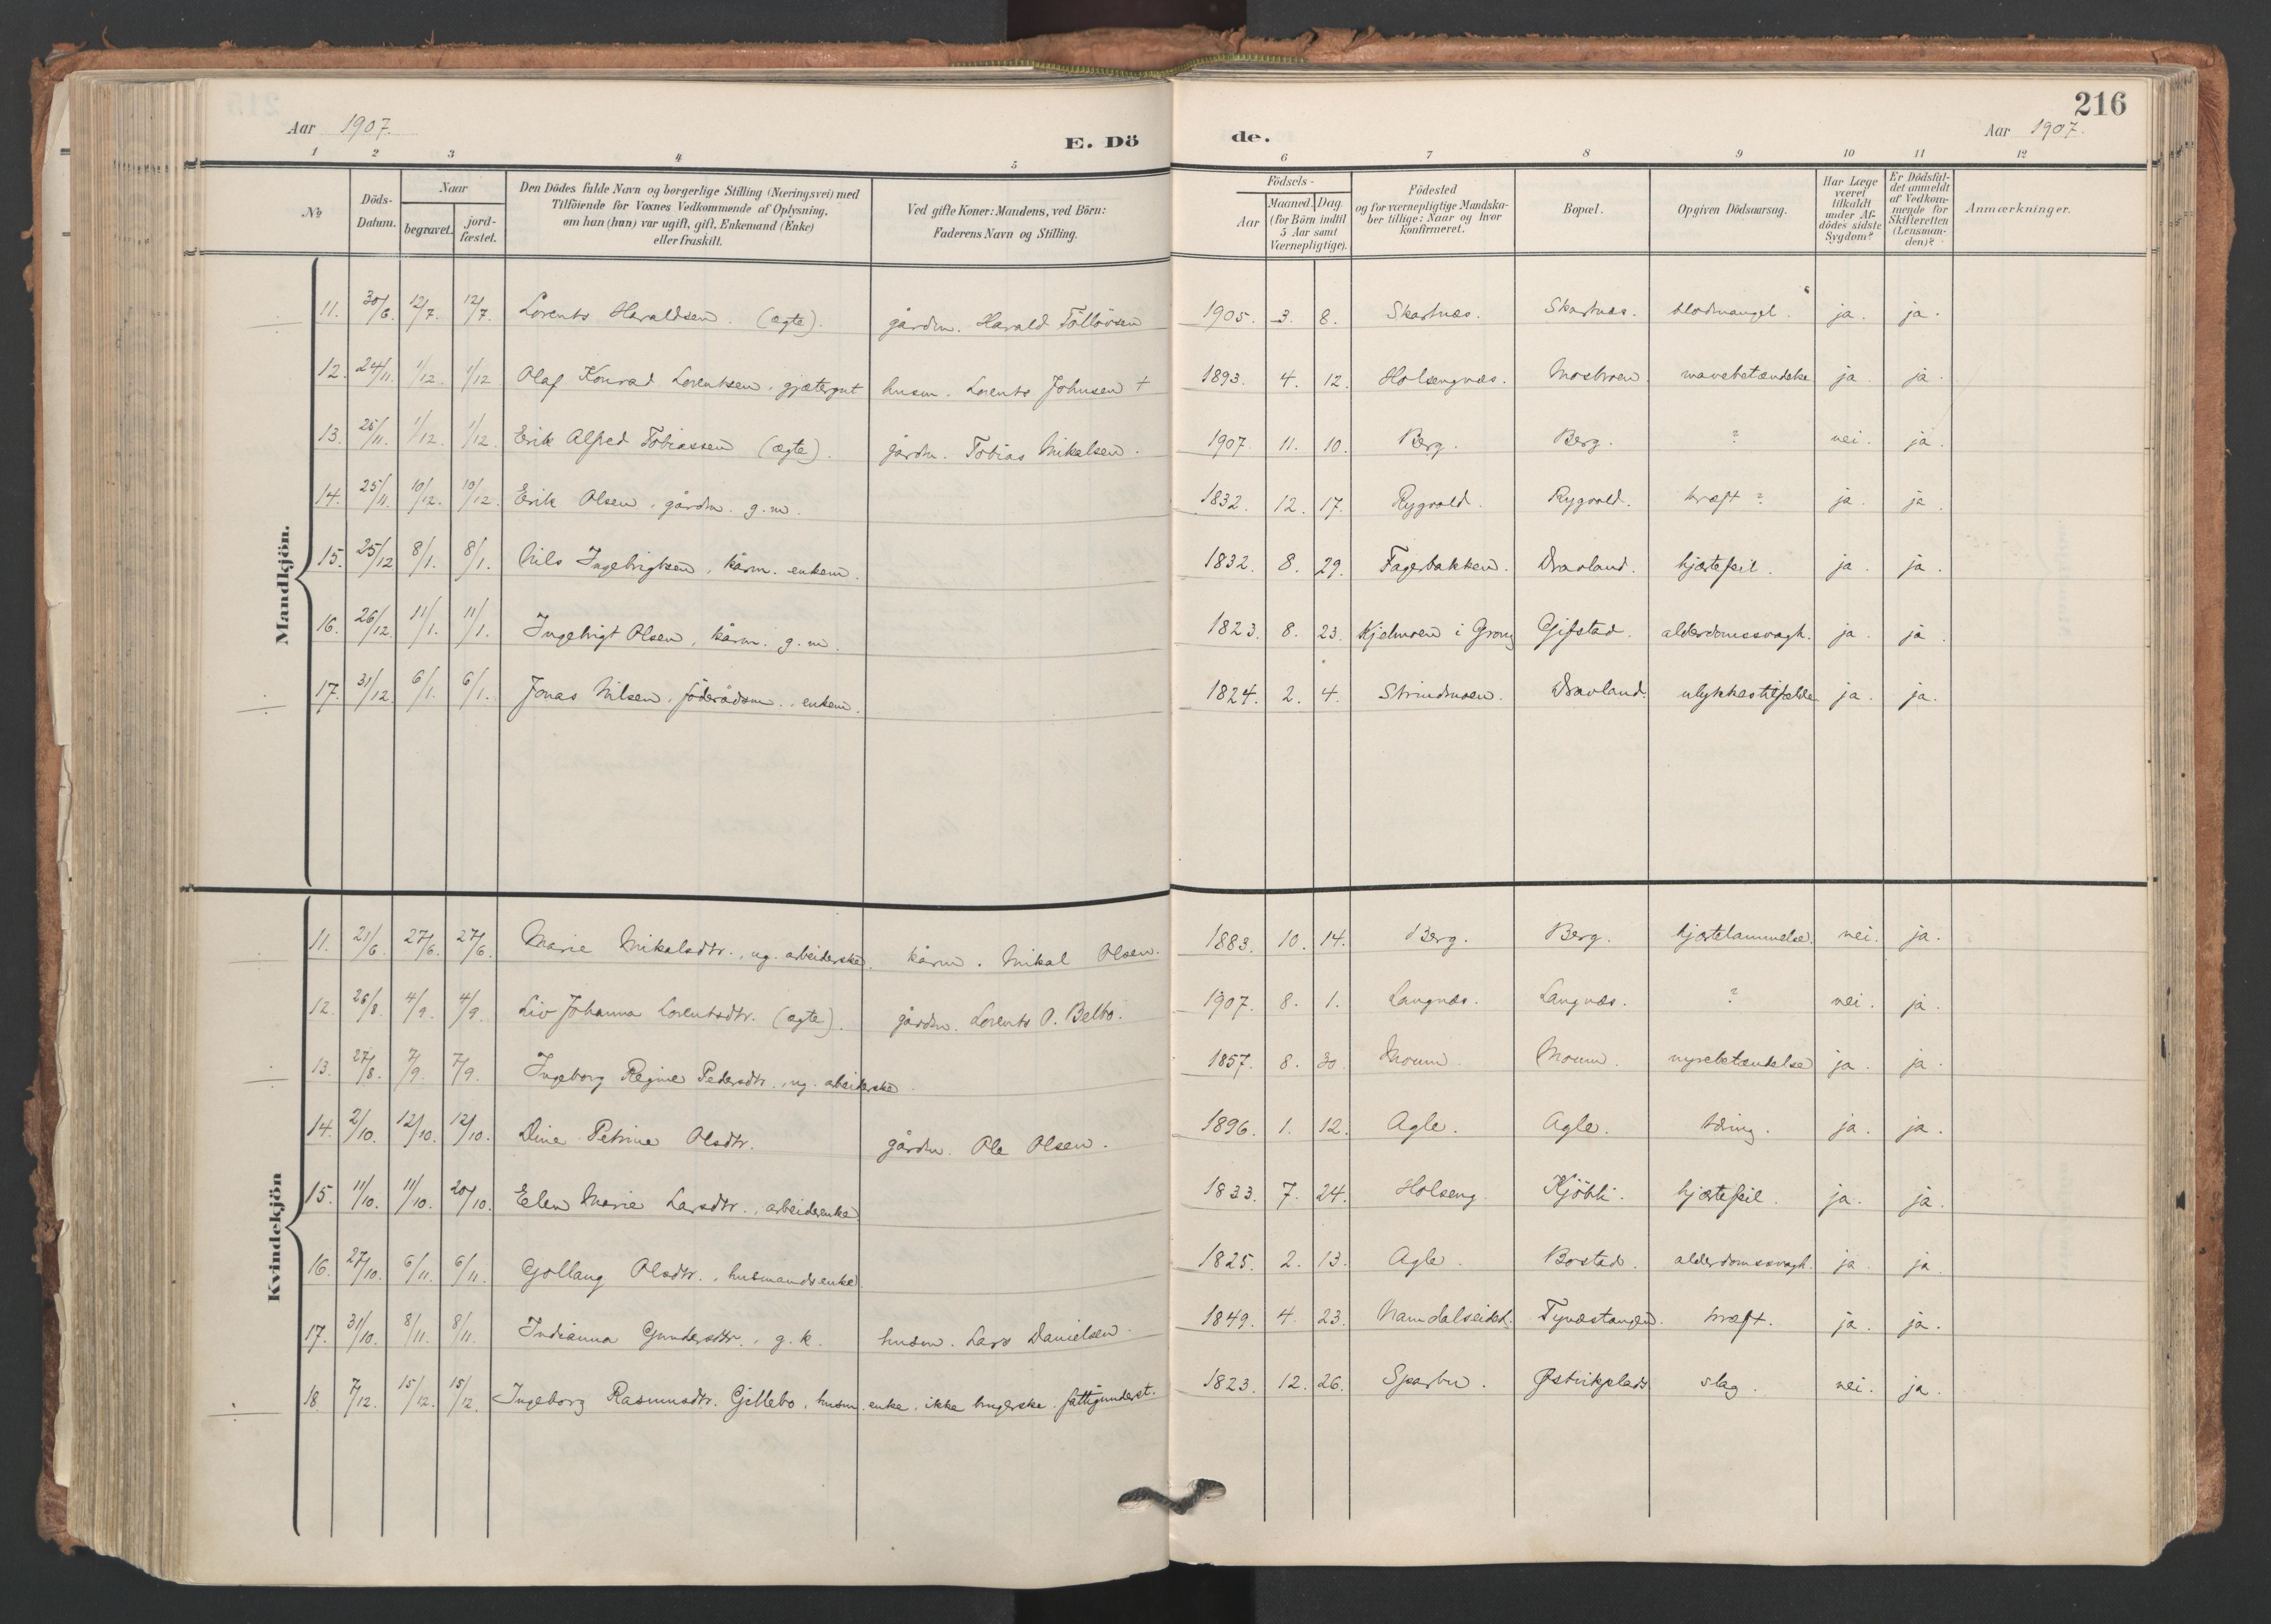 216
Aar 1907.
E. Dö de.
Aar 1907.
1 2 3 4 5 6 7 8 9 10 11 12
No
Döds-Datum.
Naar
begravet.
jord-fæstet.
Den Dödes fulde Navn og borgerlige Stilling (Næringsvei) med
Tilföiende for Voxnes Vedkommende af Oplysning,
om han (hun) var ugift, gift, Enkemand (Enke)
eller fraskilt.
Ved gifte Koner: Mandens, ved Börn:
Faderens Navn og Stilling.
Födsels-
Aar
Maaned. Dag.
(for Börn indtil
5 Aar samt
Værnepligtige).
Födested
og for værnepligtige Mandska-
ber tillige: Naar og hvor
konfirmeret.
Bopæl.
Opgiven Dödsaarsag.
Har Læge
været
tilkaldt
under Af-
dödes sidste
Sygdom?
Er Dödsfal-
det anmeldt
af Vedkom-
mende for
Skifteretten
(Lensman-
den)?
Anmærkninger.
Mandkjön.
11. 30/6 12/7. 12/7. Lorents Haraldsen. (ægte). gårdm. Harald Tollövsen 1905. 3. 8. Skartnes. Skartnes. blodmangel. ja. ja.
12. 24/11. 1/12 1/12 Olaf Konrad Lorentsen, gjætergut husm. Lorents Johnsen † 1893. 4. 12. Holsengnæs. Mosbroen mavebetændelse ja. ja.
13. 25/11. 1/12. 1/12. Erik Alfred Tobiassen (ægte). gårdm. Tobias Mikalsen. 1907. 11. 10. Berg. Berg. ? nei. ja.
14. 25/11. 10/12. 10/12. Erik Olsen, gårdm. g.m. 1832. 12. 17. Rygvold. Rygvold. kræft ? ja. ja.
15. 25/12 8/1. 8/1. Nils Ingebrigtsen, kårm. enkem. 1832. 8. 29. Fagerbakken. Dravland. hjertefeil. ja. ja.
16. 26/12. 11/1. 11/1. Ingebrigt Olsen, kårm. g.m. 1823. 8. 23. Kjelmoen i Grong Gifstad. alderdomssvagh. ja. ja.
17. 31/12. 6/1. 6/1. Jonas Nilsen, föderådsm., enkem. 1824. 2. 4. Strindmoen. Dravland. ulykkestilfælde ja. ja.
Kvindekjön
11. 21/6. 27/6. 27/6. Marie Mikalsdtr., ug. arbeiderske. kårm. Mikal Olsen. 1883. 10. 14. Berg. Berg. hjertelammelse. nei. ja.
12. 26/8. 4/9. 4/9. Liv Johanna Lorentsdtr. (ægte). gårdm. Lorents P. Belbo. 1907. 8. 1. Langnes. Langnes. ? nei. ja.
13. 27/8. 7/9. 7/9. Ingeborg Regine Pedersdtr., ug. arbeiderske. 1857. 8. 30 Moum. Moum. nyrebetændelse ja. ja.
14. 2/10. 12/10. 12/10. Dina Petrine Olsdtr. gårdm. Ole Olsen. 1896. 1. 12. Agle. Agle. tæring. ja. ja.
15. 11/10. 11/10. 20/10. Elen Marie Larsdtr., arbeiderenke 1833. 7. 24. Holseng. hjertefeil. ja. ja.
16. 27/10. 6/11. 6/11. Gollaug Olsdtr., husmandsenke 1825. 2. 13. Agle. Bostad. alderdomssvagh. ja. ja.
17. 31/10. 8/11. 8/11. Indianna Gundersdtr., g.k. husm. Lars Danielsen. 1849. 4. 23. Namdalseidet. kræft. ja. ja.
18. 7/12. 15/12. 15/12. Ingeborg Rasmusdtr. Gillebo, husm. enke, ikke brugerske. fattigunderst. 1823. 12. 26. Sparbu. Østvikplads slag. nei. ja.